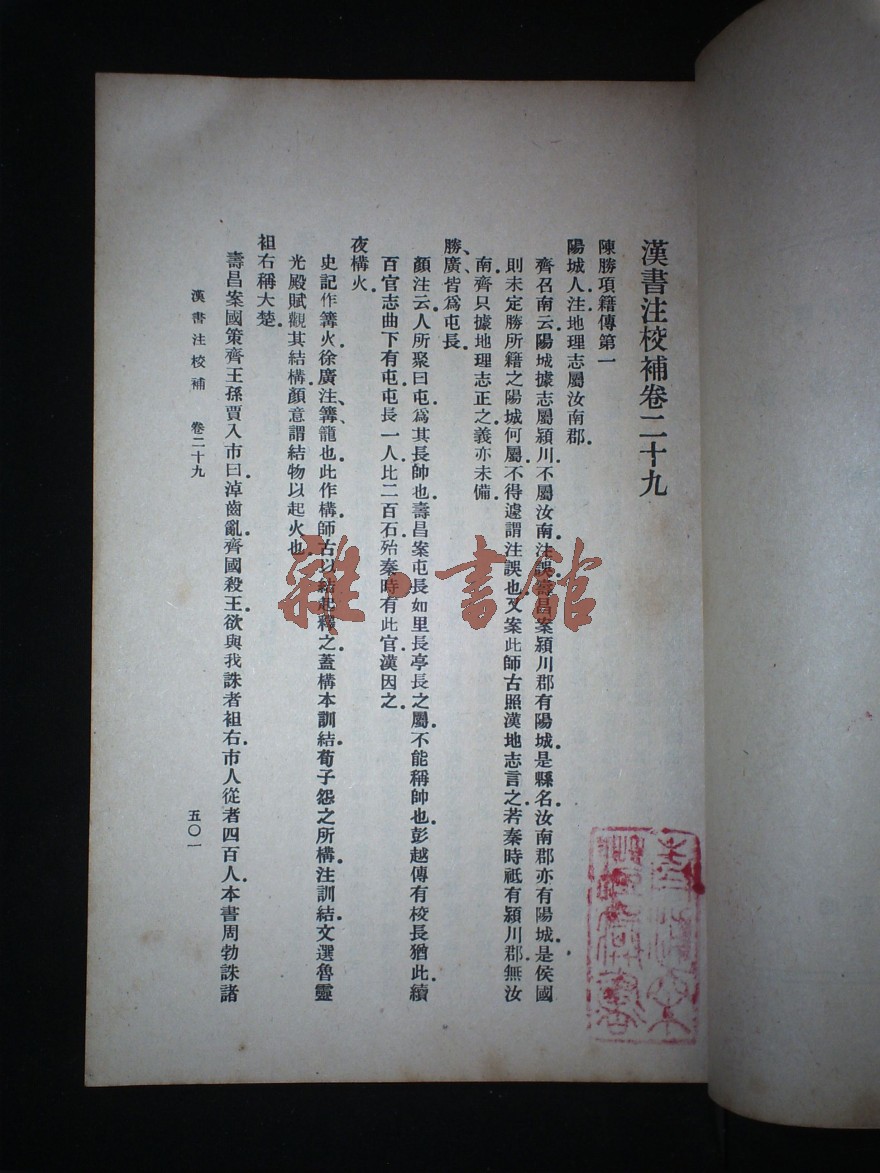 漢書注校補卷二十九
陳勝項籍傳第一
陽城人注地理志屬汝南郡.
齊召南云.陽城據志屬潁川.不屬汝南.注誤.壽昌案潁川郡有陽城.是縣名.汝南郡亦有陽城.是侯國
則未定勝所籍之陽城何屬.不得遽謂注誤也.又案此師古照漢地志言之.若秦時祇有潁川郡.無汝
南.齊只據地理志正之.義亦未備.
勝、廣皆爲屯長.
顏注云.人所聚曰屯.爲其長帥也.壽昌案屯長如里長亭長之屬.不能稱帥也.彭越傳有校長猶此.續
百官志曲下有屯.屯長一人.比二百石.殆秦時有此官.漢因之.
夜構火.
史記作篝火.徐廣注、篝、籠也.此作構.師古以結起釋之.蓋構本訓結.荀子怨之所構.注訓結.文選魯靈
光殿賦觀其結構.顏意謂結物以起火也.
袒右稱大楚.
壽昌案國策齊王孫賈入市曰.淖齒亂齊國.殺王.欲與我誅者袒右.市人從者四百人.本書周勃誅諸
漢書注校補 卷二十九
五〇一
雜·書館